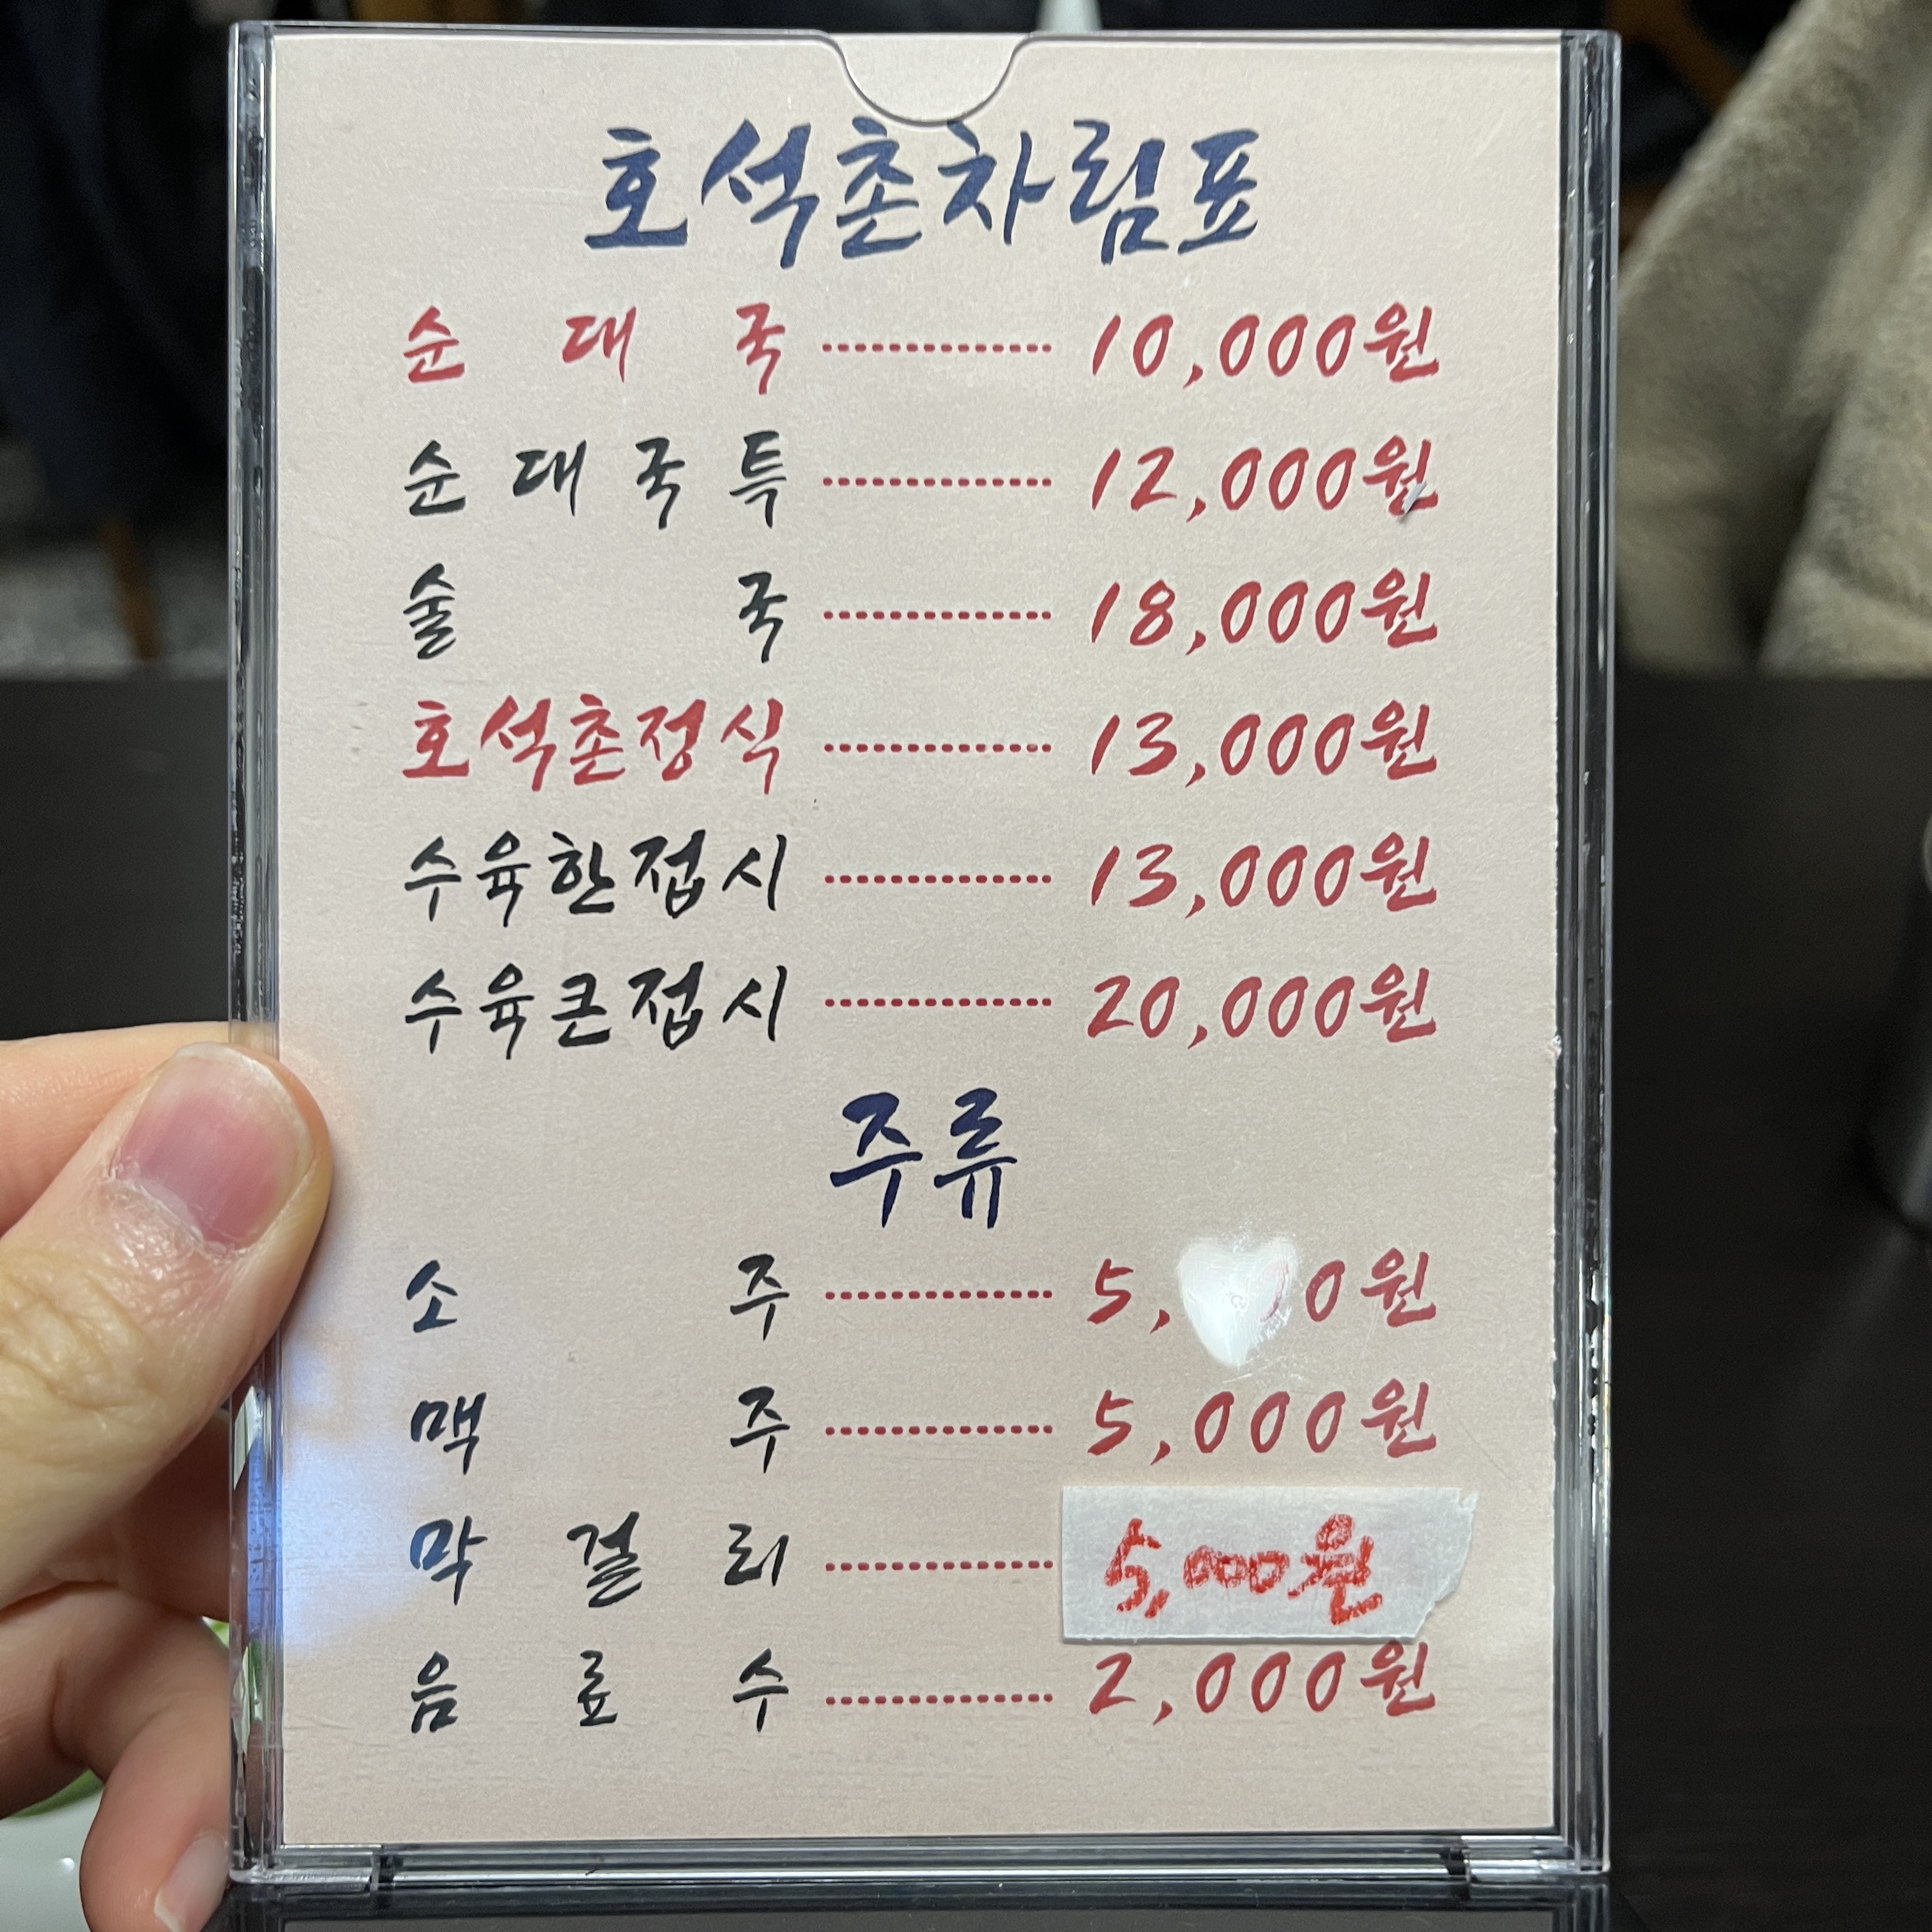 호석촌차림표
순대국 10,000원
순대국특 12,000원
술국 18,000원
호석촌정식 13,000원
수육한접시 13,000원
수육큰접시 20,000원
주류
소주
맥주 5,000원
막걸리 5,000원
음료수 2,000원